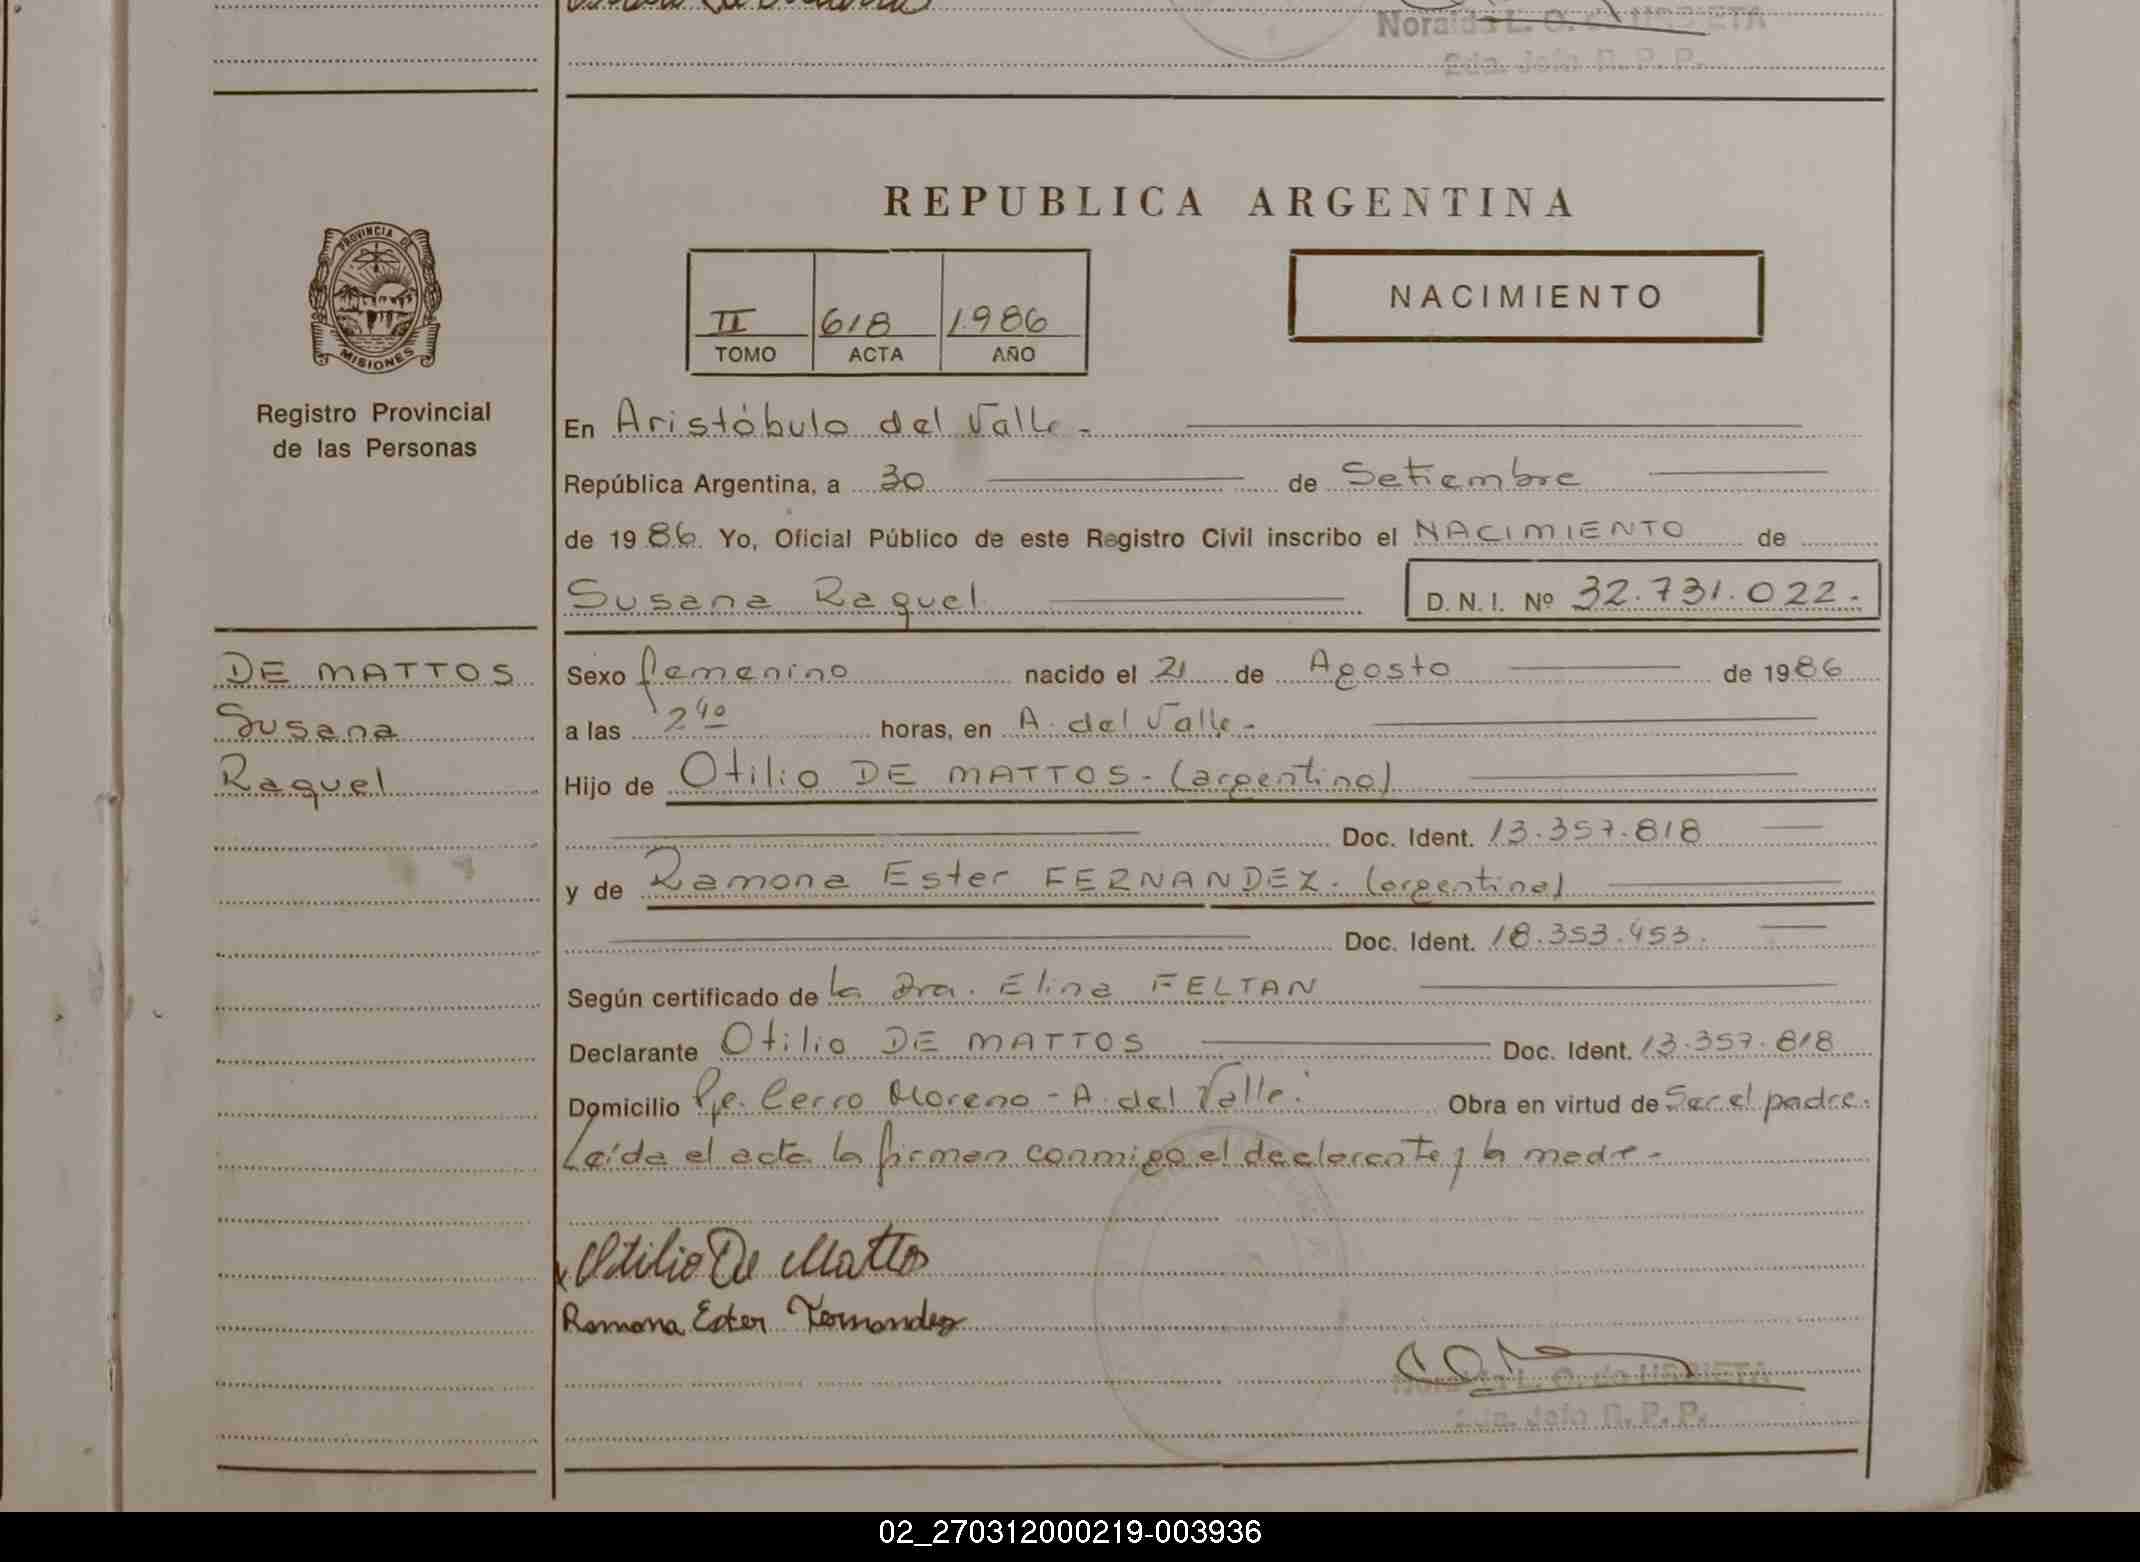 Noraida L. O. de URRIETA
2da. Jefa R. P. P.
REPUBLICA ARGENTINA
PROVINCIA DE
MISIONES
II 618 1986
TOMO ACTA AÑO
NACIMIENTO
Registro Provincial
de las Personas
En Aristóbulo del Valle -
República Argentina, a 30 de Setiembre
de 1986. Yo, Oficial Público de este Registro Civil inscribo el NACIMIENTO de
Susana Raquel D. N. I. Nº 32.731.022.-
DE MATTOS
Susana
Raquel
Sexo femenino nacido el 21 de Agosto de 1986
a las 2 40 horas, en A. del Valle.-
Hijo de Otilio DE MATTOS - (argentino)
Doc. Ident. 13.357.818
y de Ramona Ester FERNANDEZ - (argentina)
Doc. Ident. 18.353.453.
Según certificado de la Dra. Elina FELTAN
Declarante Otilio DE MATTOS Doc. Ident. 13.357.818
Domicilio Pje. Cerro Moreno - A. del Valle. Obra en virtud de Ser el padre.
Leída el acta la firman conmigo el declarante y la madre -
Otilio De Mattos
Ramona Ester Fernandez
Noraida L. O. de URRIETA
2da. Jefa R. P. P.
02_270312000219-003936